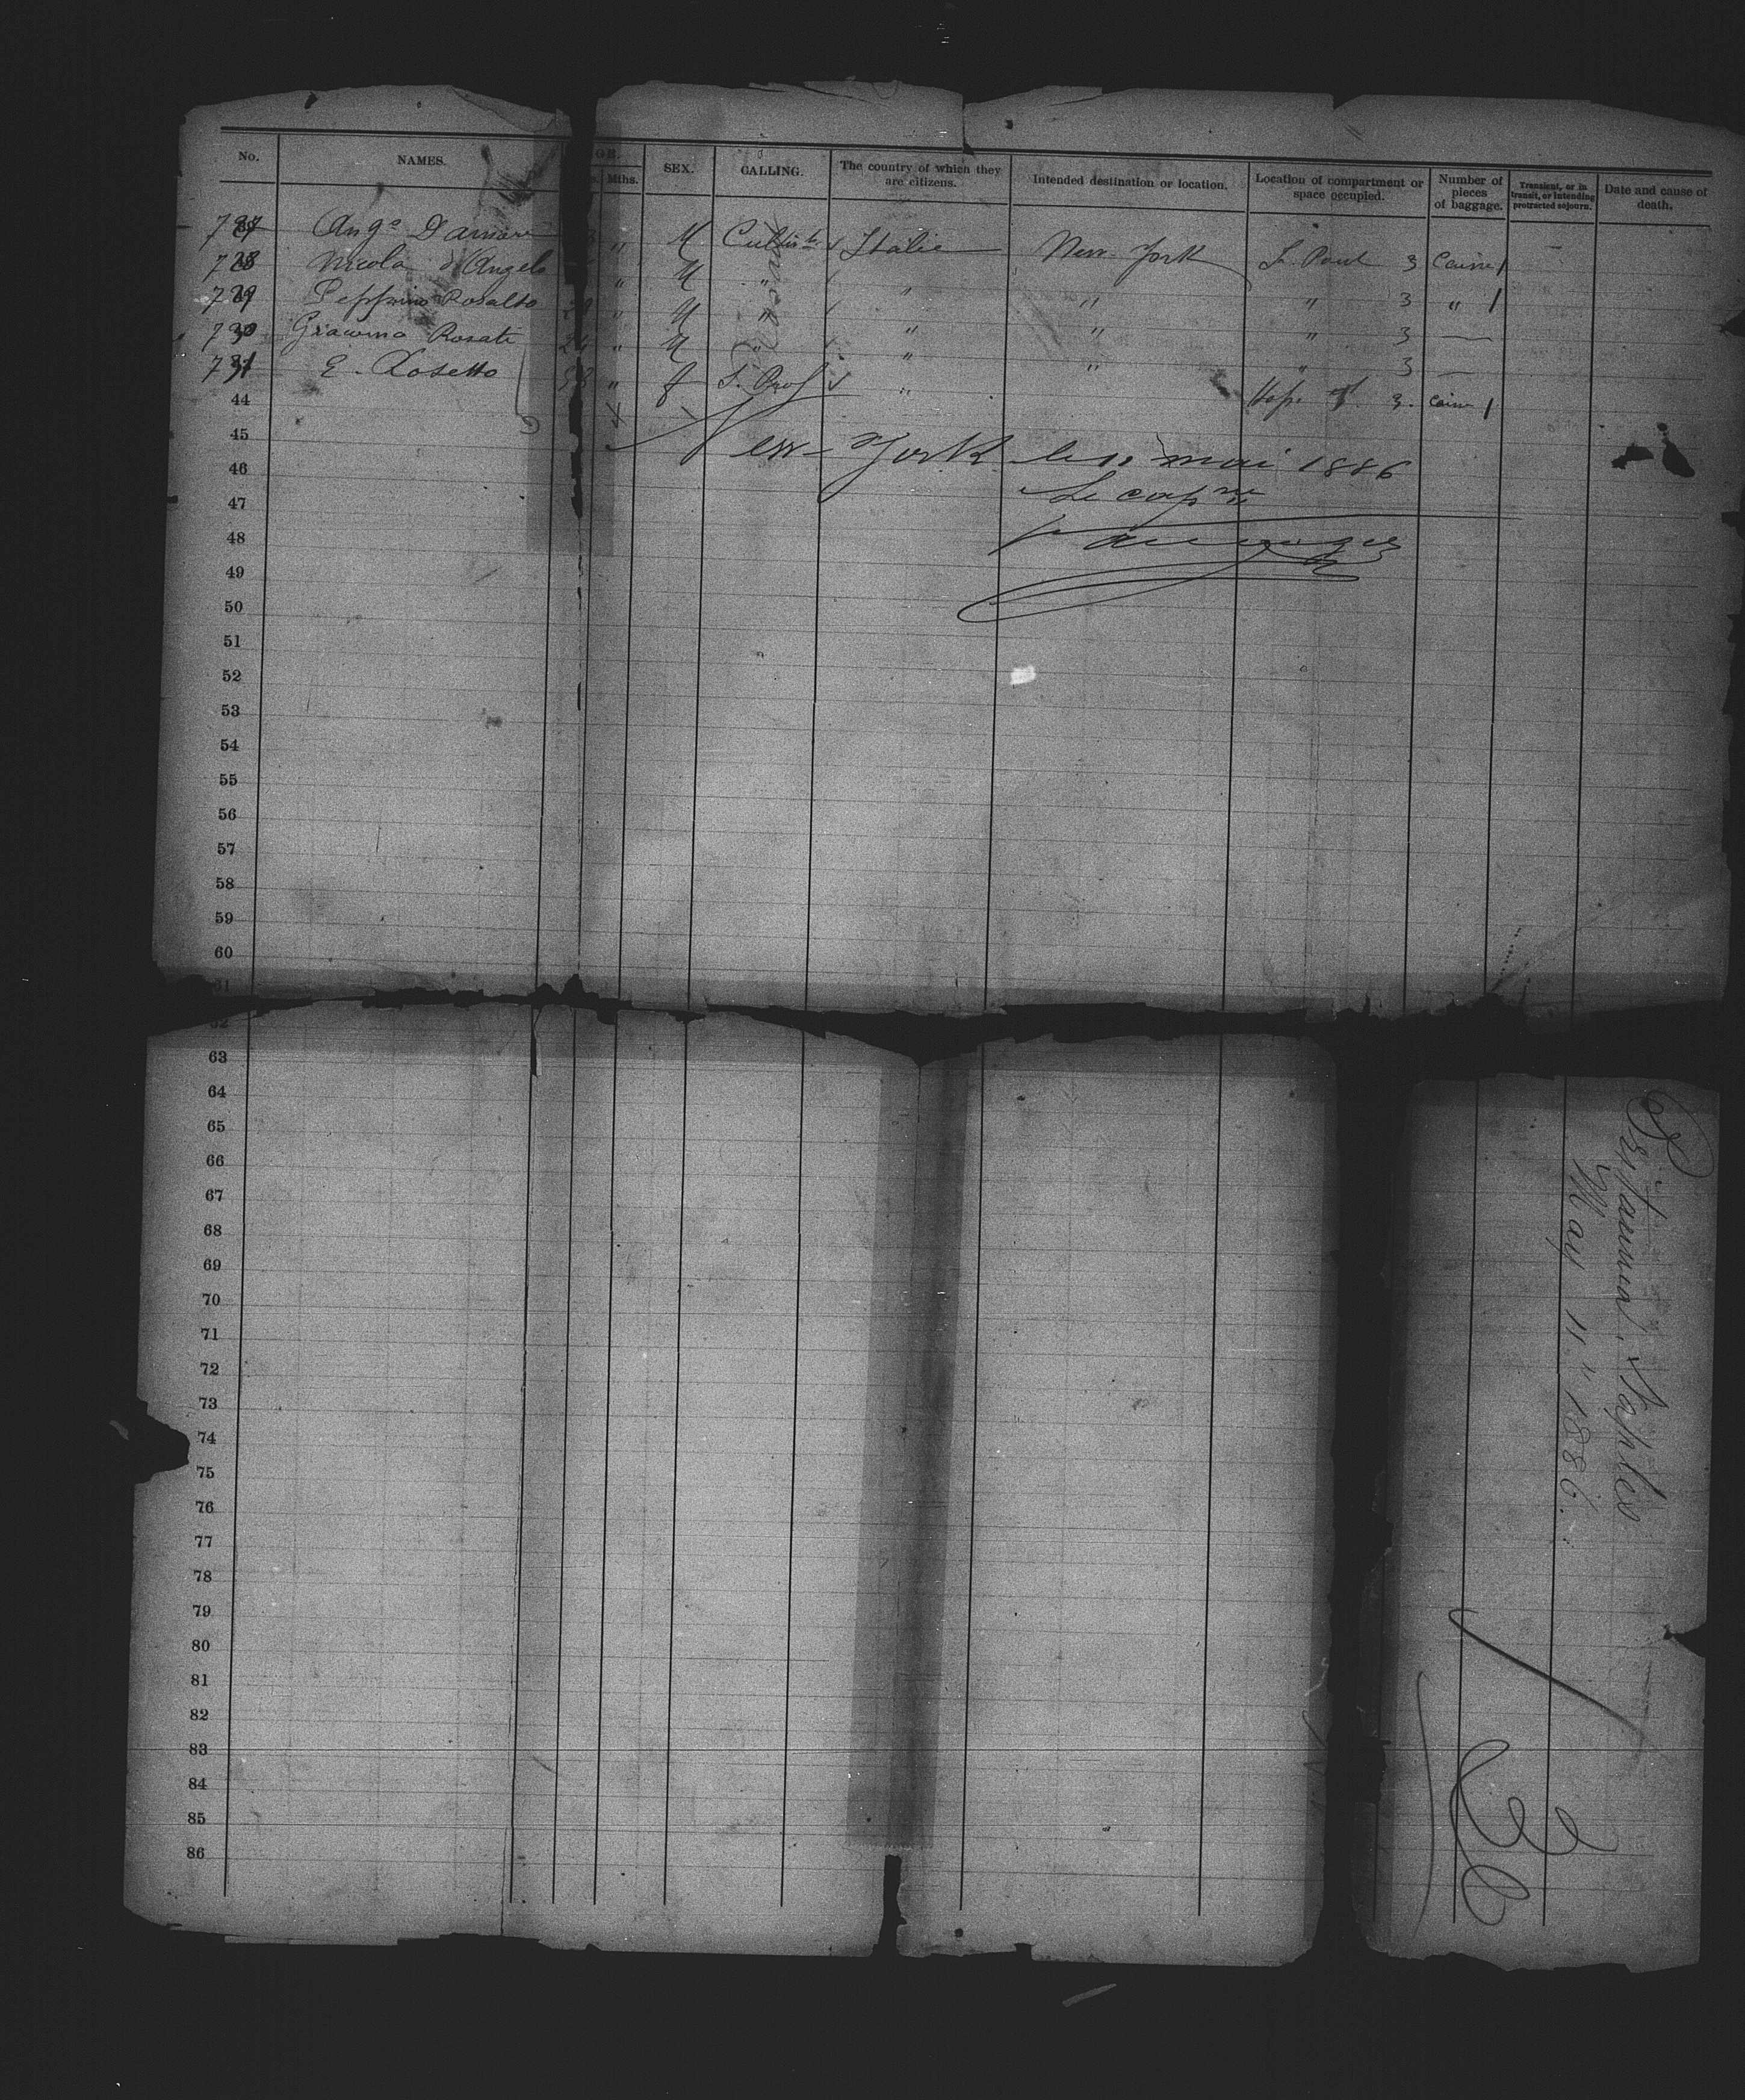 No. NAMES. AGE. Mths. SEX. CALLING. The country of which they are citizens. Intended destination or location. Location of compartment or space occupied. Number of pieces of baggage. Transient, or in transit, or intending protracted sojourn. Date and cause of death.
727 Ang.o Damore " M Cultivtr Italie New-York 3 1
728 Nicola d'Angelo " M " " " " 3 " 1
729 Peppino Rosalto 28 " M " " " " 3
730 Giacomo Rosati 24 " M " " " " 3
731 E. Rosetto 38 " f S. Prof " 3. 1
44
45 New-York le 11 mai 1886
46 Le capne
47
48
49
50
51
52
53
54
55
56
57
58
59
60
61
62
63
64
65
66
67
68
69
70
71
72
73
74
75
76
77
78
79
80
81
82
83
84
85
86
Britannia. Naples
May 11." 1886.